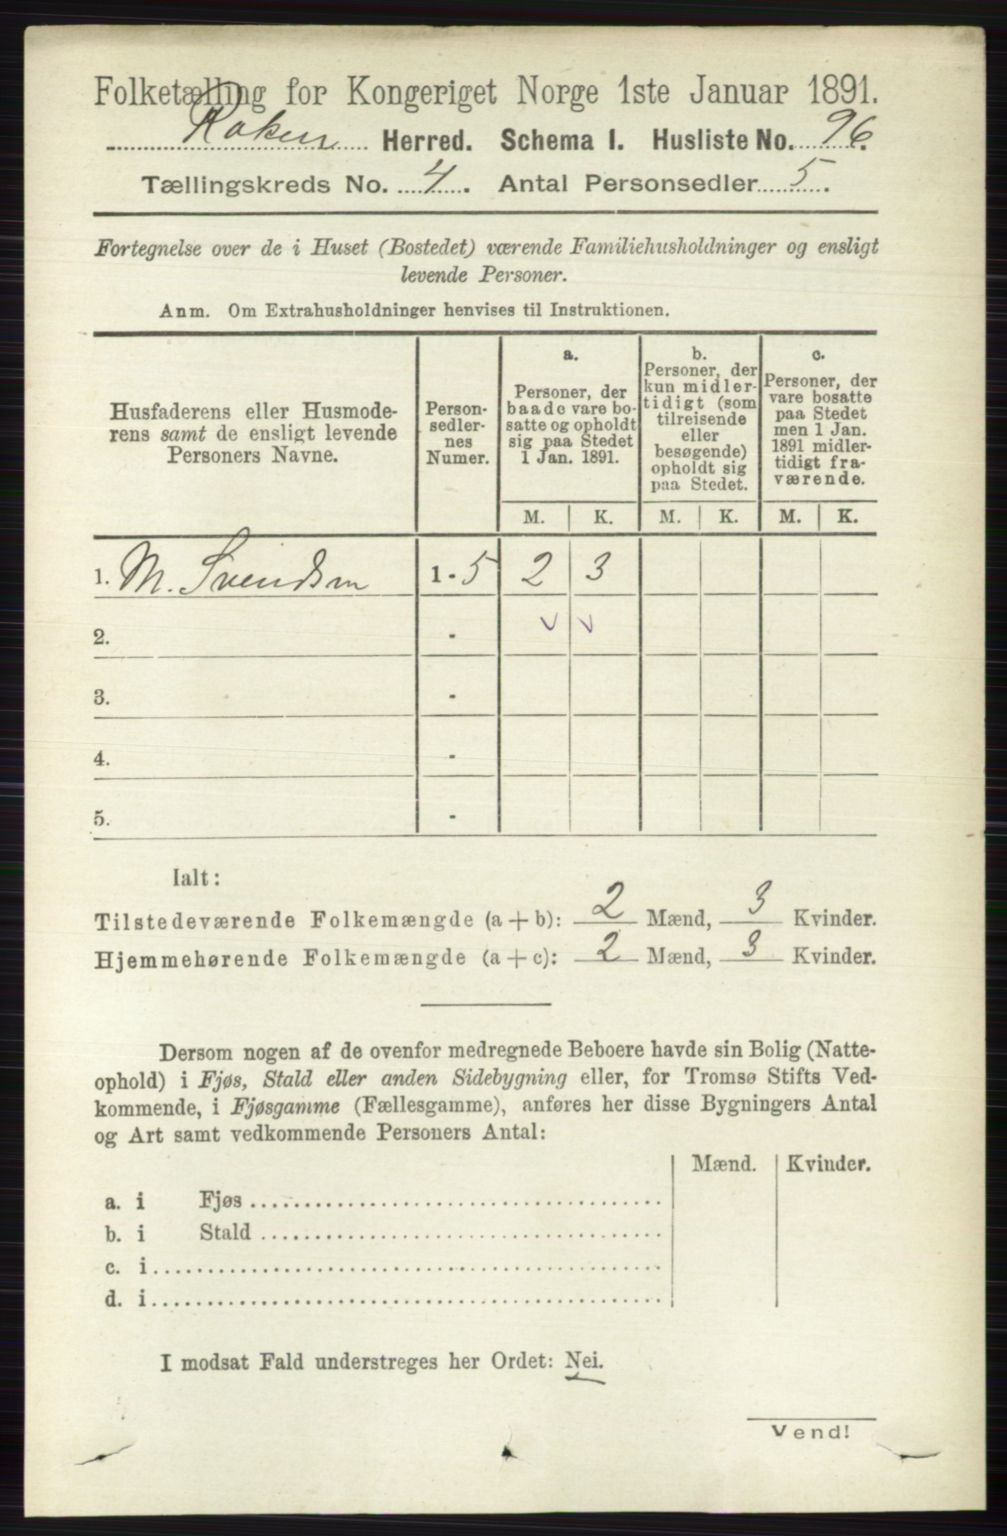 Folketælling for Kongeriget Norge 1ste Januar 1891.
Røken Herred. Schema I. Husliste No. 96.
Tællingskreds No. 4. Antal Personsedler 5.
Fortegnelse over de i Huset (Bostedet) værende Familiehusholdninger og ensligt
levende Personer.
Anm. Om Extrahusholdninger henvises til Instruktionen.
Husfaderens eller Husmode-
rens samt de ensligt levende
Personers Navne.
Person-
sedler-
nes
Numer.
a.
Personer, der
baade vare bo-
satte og opholdt
sig paa Stedet
1 Jan. 1891.
b.
Personer, der
kun midler-
tidigt (som
tilreisende
eller
besøgende)
opholdt sig
paa Stedet.
c.
Personer, der
vare bosatte
paa Stedet
men 1 Jan.
1891 midler-
tidigt fra-
værende.
M. K. M. K. M. K.
1. M. Svendsen 1 - 5 2 3
2. - v v
3. -
4. -
5. -
Ialt:
Tilstedeværende Folkemængde (a + b): 2 Mænd, 3 Kvinder.
Hjemmehørende Folkemængde (a + c): 2 Mænd, 3 Kvinder.
Dersom nogen af de ovenfor medregnede Beboere havde sin Bolig (Natte-
ophold) i Fjøs, Stald eller anden Sidebygning eller, for Tromsø Stifts Ved-
kommende, i Fjøsgamme (Fællesgamme), anføres her disse Bygningers Antal
og Art samt vedkommende Personers Antal:
Mænd. Kvinder.
a. i Fjøs
b. i Stald
c. i
d. i
I modsat Fald understreges her Ordet: Nei.
Vend!